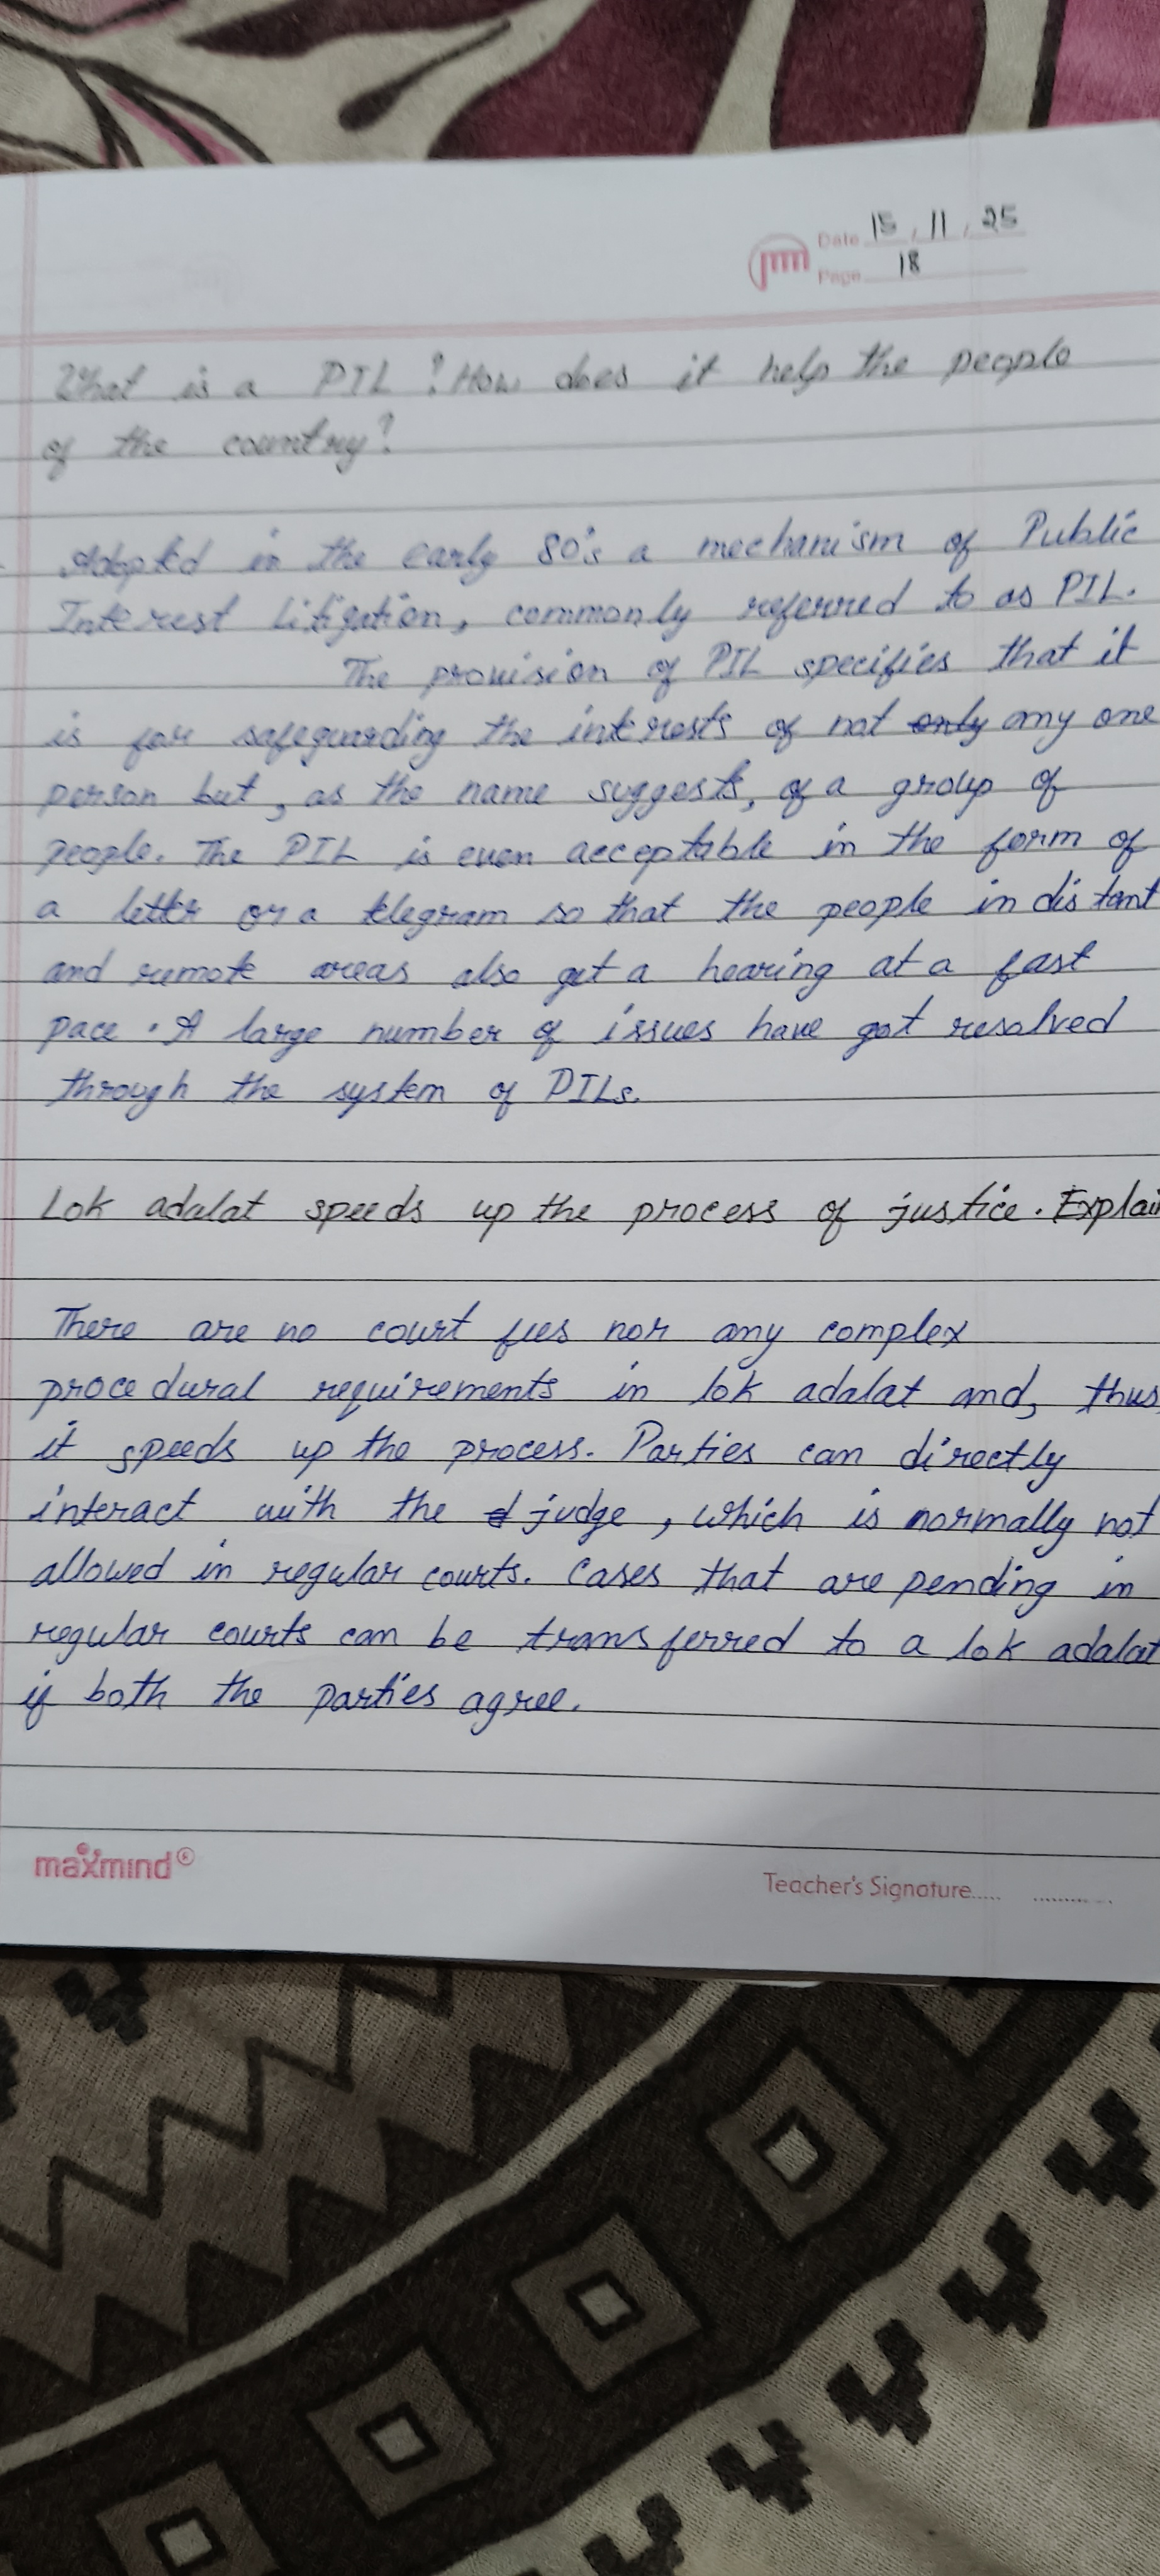 Date 15, 11, 25
Page 18
What is a PIL ? How does it help the people
of the country?
Adopted in the early 80's a mechanism of Public
Interest Litigation, commonly referred to as PIL.
The provision of PIL specifies that it
is for safeguarding the interests of not only any one
person but, as the name suggests, of a group of
people. The PIL is even acceptable in the form of
a letter or a telegram so that the people in distant
and remote areas also get a hearing at a fast
pace. A large number of issues have got resolved
through the system of PILs.
Lok adalat speeds up the process of justice. Explain
There are no court fees nor any complex
procedural requirements in lok adalat and, thus,
it speeds up the process. Parties can directly
interact with the judge, which is normally not
allowed in regular courts. Cases that are pending in
regular courts can be transferred to a lok adalat
if both the parties agree.
maxmind
Teacher's Signature..... ..........